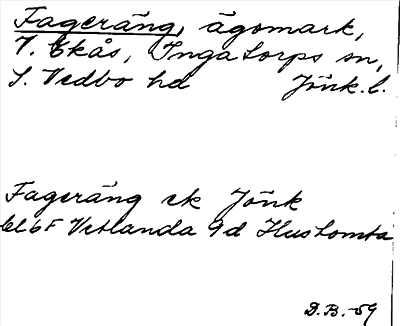 Fageräng, ägomark,
V. Ekås, Ingatorps sn,
S. Vedbo hd Jönk. l.
Fageräng ek Jönk
6F Vetlanda 9d Hustomta
D.B. -59